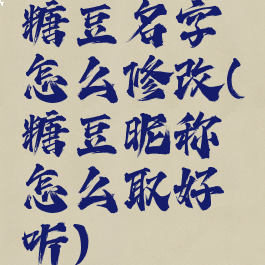 糖豆名字
怎么修改(
糖豆昵称
怎么取好
听)